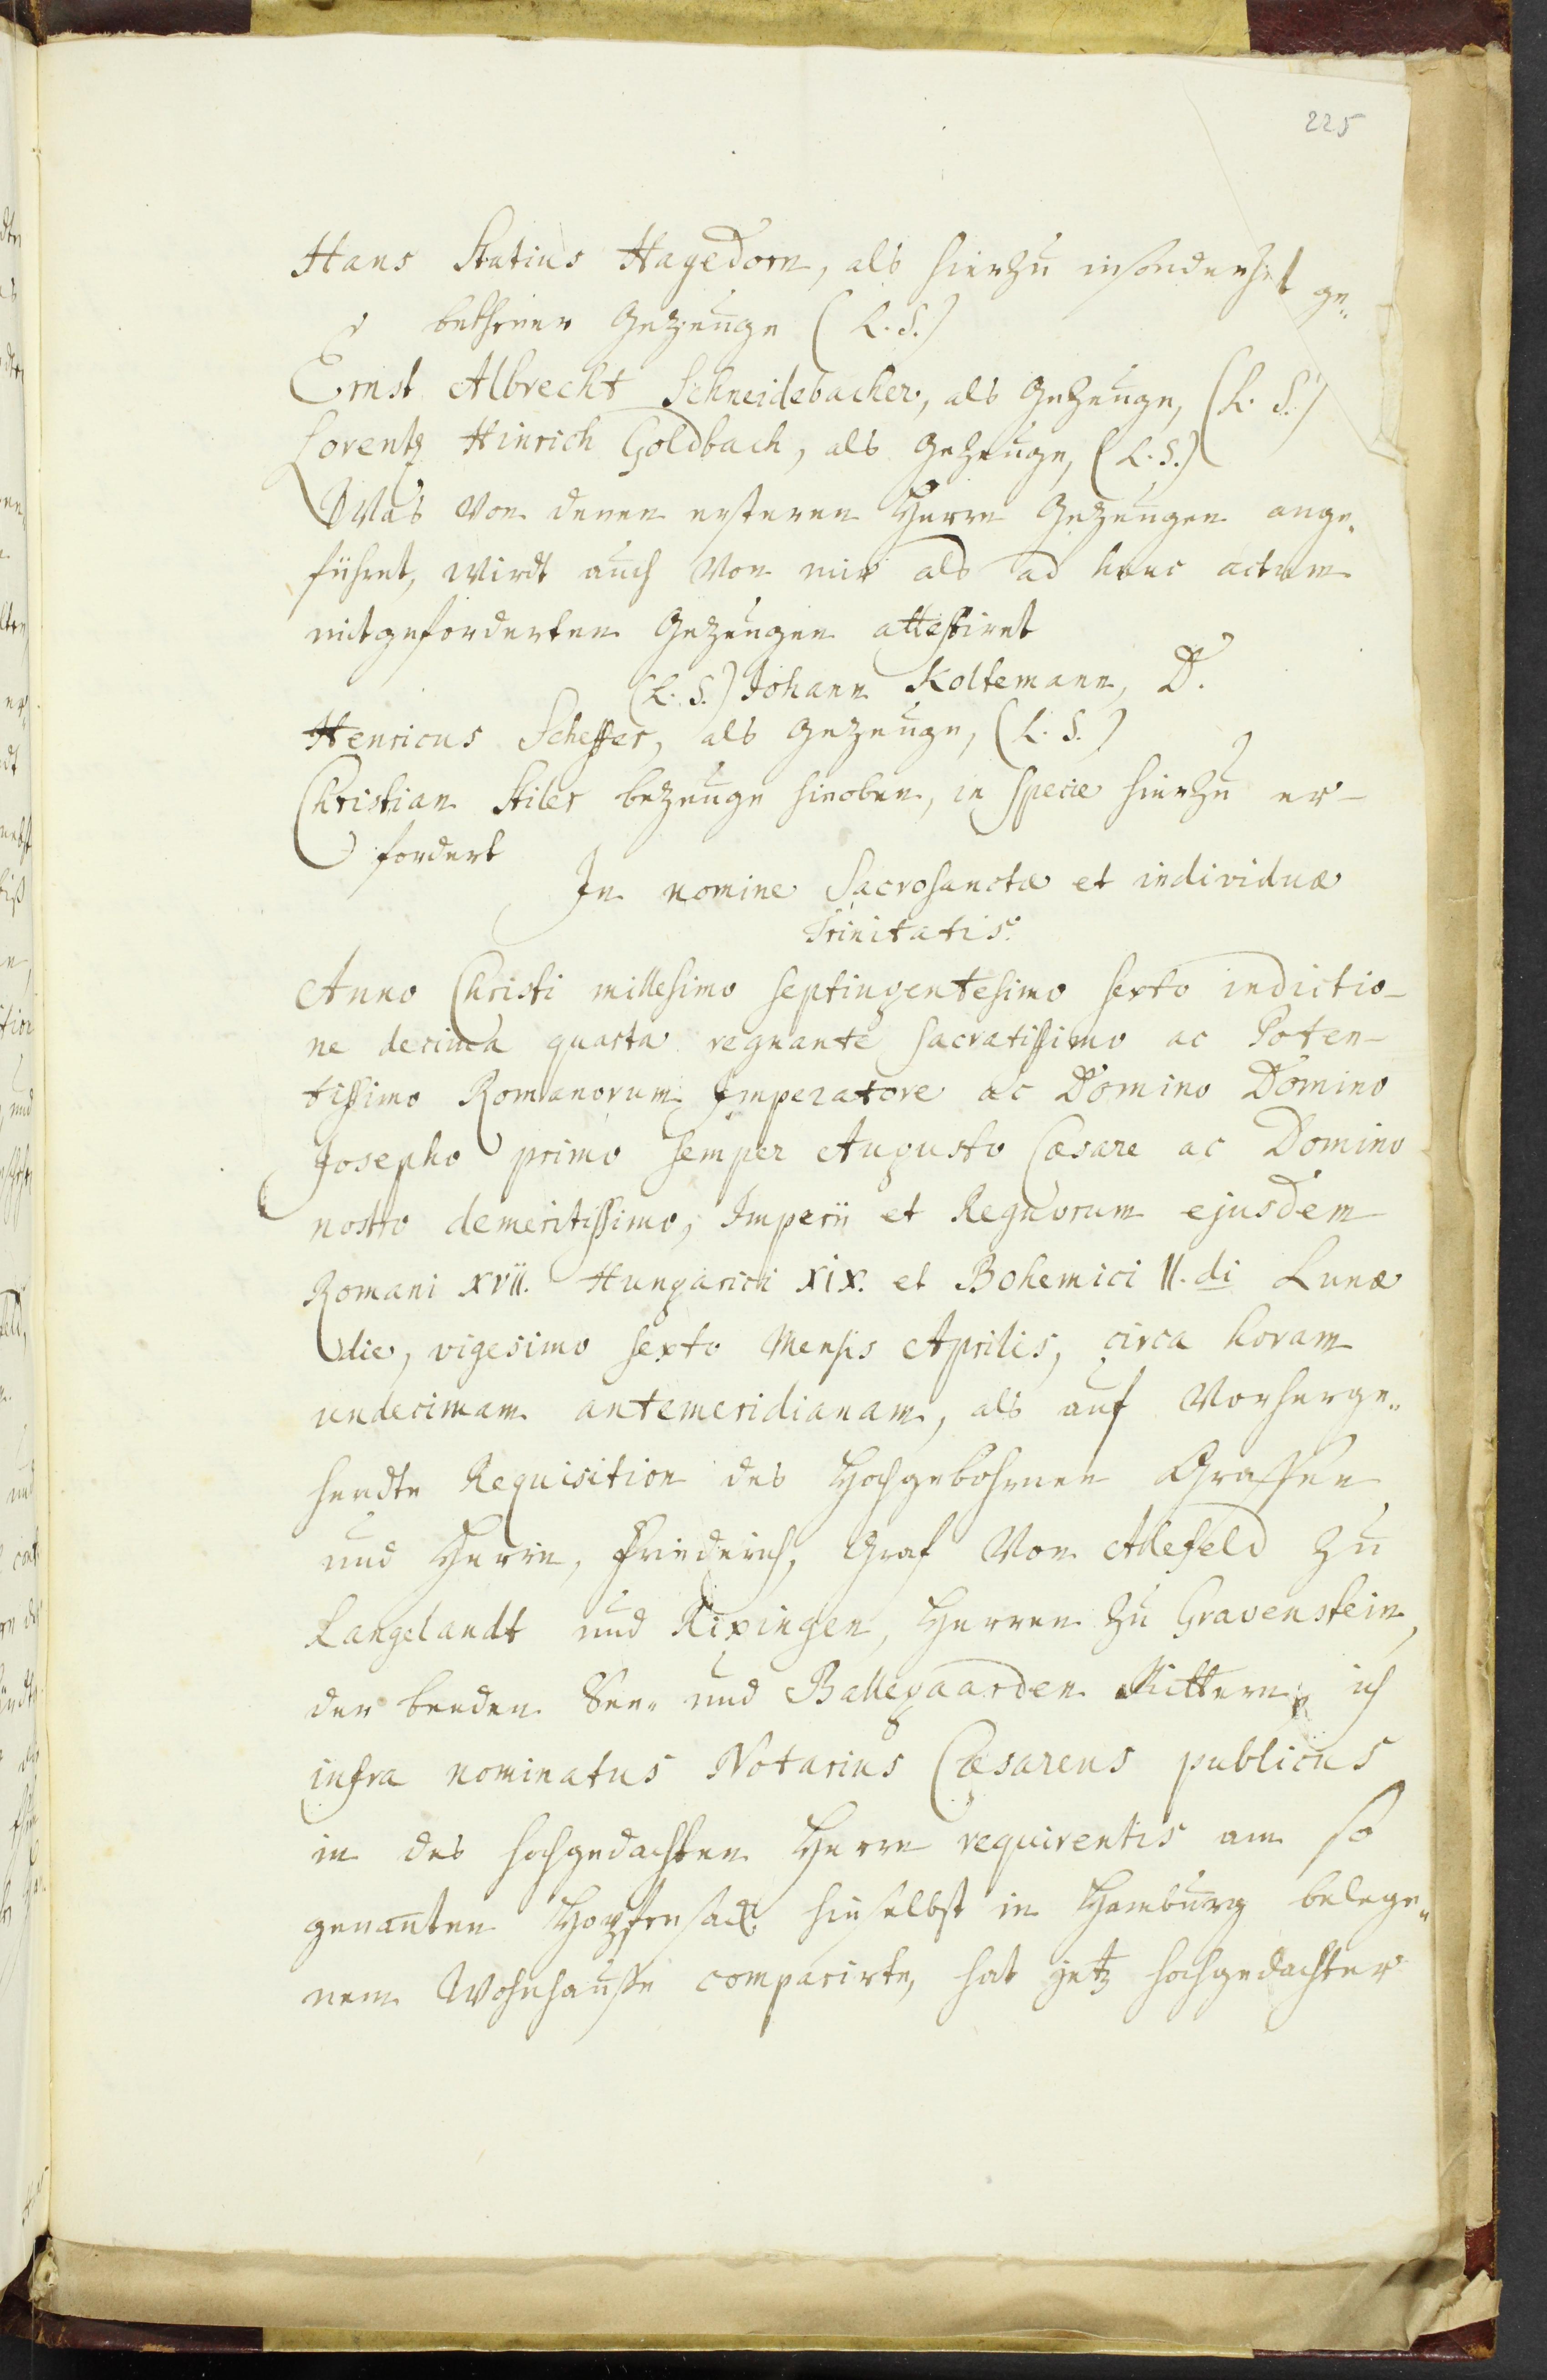 225
Hans Statius Hagedorn, als hierzu insonderheit ge„
bethener Gezeuge (L. S.)
Ernst Albrecht Schneidebacher, als Gezeuge, (L. S.)
Lorentz Hinrich Goldbach, als Gezeuge, (L. S.)
Was von denen ersteren Herrn Gezeugen ange„
führet, wirdt auch von mir als ad hunc actum
mitgeforderten Gezeugen attestiret
(L. S.) Johann Koltemann, D.
Henricus Scheffer, als Gezeuge, (L. S.)
Christian Stiler bezeuge hieoben, in specie hierzu er-
fordert
In nomine Sacrosanctæ et individuæ
Trinitatis.
Anno Christi millesimo septingentesimo sexto indictio-
ne decima quarta regnante sacratissimo ac Poten-
tissimo Romanorum Imperatore ac Domino Domino
Josepho primo semper Augusto Cæsare ac Domino
nostro clementissimo, Imperii et Regnorum ejusdem
Romani xvii. Hungarici xix. et Bohemici II.di Lunæ
die, vigesimo sexto Mensis Aprilis, circa horam
undecimam antemeridianam, als auf vorherge„
hendte Requisition des Hochgebohrnen Graffen
und Herrn, Friederich, Graf von Alefeld zu
Langelandt und Rixingen, Herren zu Gravenstein,
der beeden und Ballegaarden Rittern, ich
infra nominatus Notarius Cæsareus publicus
in des hochgedachten Herrn requirentis am so
genanten Hopfensack hieselbst in Hamburg belege„
nem Wohnhauße comparirte, hat jetz hochgedachter